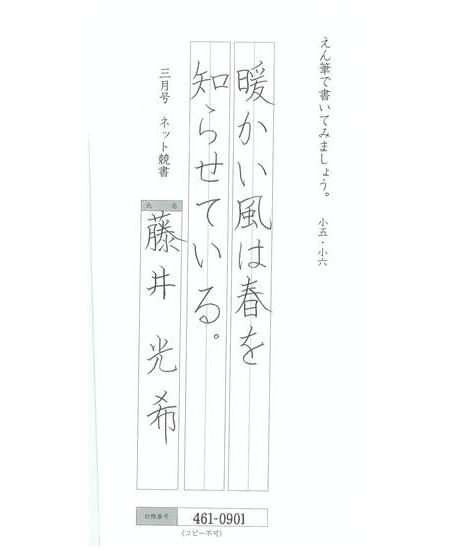 えん筆で書いてみましょう。 小五・小六
暖かい風は春を
知らせている。
三月号 ネット競書
氏 名
藤井 光希
台帳番号 461-0901
(コピー不可)